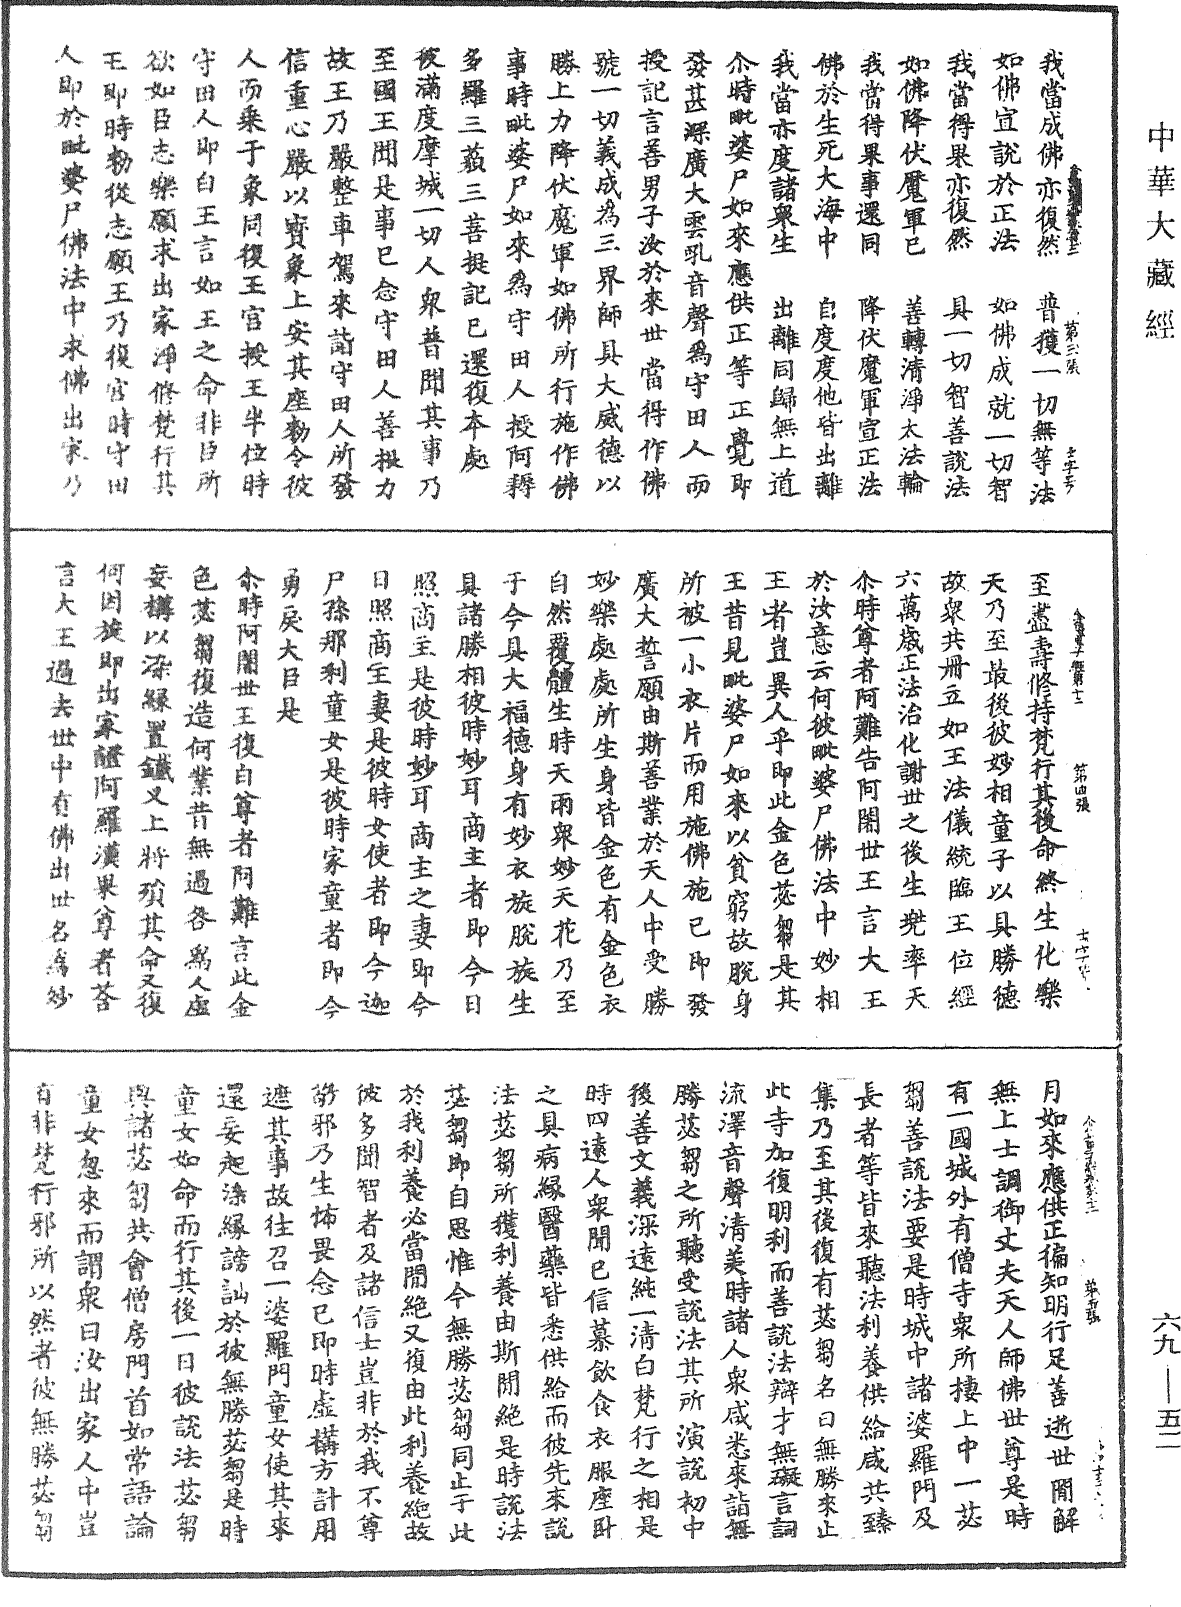 中華大藏經
六九—五二
我當成佛亦復然　普獲一切無等法
如佛宣說於正法　如佛成就一切智
我當得果亦復然　具一切智善說法
如佛降伏魔軍已　善轉清淨大法輪
我當得果事還同　降伏魔軍宣正法
佛於生死大海中　自度度他皆出離
我當亦度諸衆生　出離同歸無上道
尒時毗婆尸如來應供正等正覺即
發甚深廣大雲乳音聲爲守田人而
授記言善男子汝於來世當得作佛
號一切義成爲三界師具大威德以
勝上力降伏魔軍如佛所行施作佛
事時毗婆尸如來爲守田人授阿耨
多羅三藐三菩提記已還復本處
彼滿度摩城一切人衆普聞其事乃
至國王聞是事已念守田人善根力
故王乃嚴整車駕來詣守田人所發
信重心嚴以寶象上安其座勑令彼
人而乗于象同復王宮授王半位時
守田人即白王言如王之命非臣所
欲如臣志樂願求出家淨修梵行其
王即時勑從志願王乃復宮時守田
人即於毗婆尸佛法中求佛出家乃
第三張
至盡壽修持梵行其後命終生化樂
天乃至最後彼妙相童子以具勝德
故衆共冊立如王法儀統臨王位經
六萬歲正法治化謝世之後生兜率天
尒時尊者阿難告阿闍世王言大王
於汝意云何彼毗婆尸佛法中妙相
王者豈異人乎即此金色苾芻是其
王昔見毗婆尸如來以貧窮故脫身
所被一小衣片而用施佛施已即發
廣大誓願由斯善業於天人中受勝
妙樂處處所生身皆金色有金色衣
自然覆體生時天雨衆妙天花乃至
于今具大福德身有妙衣旋脫旋生
具諸勝相彼時妙耳商主者即今日
照商主是彼時妙耳商主之妻即今
日照商主妻是彼時女使者即今迦
尸孫那利童女是彼時家童者即今
勇戾大臣是
尒時阿闍世王復白尊者阿難言此金
色苾芻復造何業昔無過咎爲人虛
妄構以染緣置鐵叉上將殞其命又復
何因旋即出家證阿羅漢果尊者荅
言大王過去世中有佛出世名爲妙
第四張
月如來應供正徧知明行足善逝世間解
無上士調御丈夫天人師佛世尊是時
有一國城外有僧寺衆所棲止中一苾
芻善說法要是時城中諸婆羅門及
長者等皆來聽法利養供給咸共臻
集乃至其後復有苾芻名曰無勝來止
此寺加復明利而善說法辯才無礙言詞
流澤音聲清美時諸人衆咸悉來詣無
勝苾芻之所聽受說法其所演說初中
後善文義深遠純一清白梵行之相是
時四遠人衆聞已信慕飲食衣服座卧
之具病緣醫藥皆悉供給而彼先來說
法苾芻所獲利養由斯閒絶是時說法
苾芻即自思惟今無勝苾芻同止于此
於我利養必當閒絶又復由此利養絶故
彼多聞智者及諸信士豈非於我不尊
邪乃生怖畏念已即時虛構方計用
遮其事故往召一婆羅門童女使其來
還妄起染緣謗訕於彼無勝苾芻是時
童女如命而行其後一日彼說法苾芻
與諸苾芻共會僧房門首如常語論
童女忽來而謂衆曰汝出家人中豈
有非梵行邪所以然者彼無勝苾芻
第五張